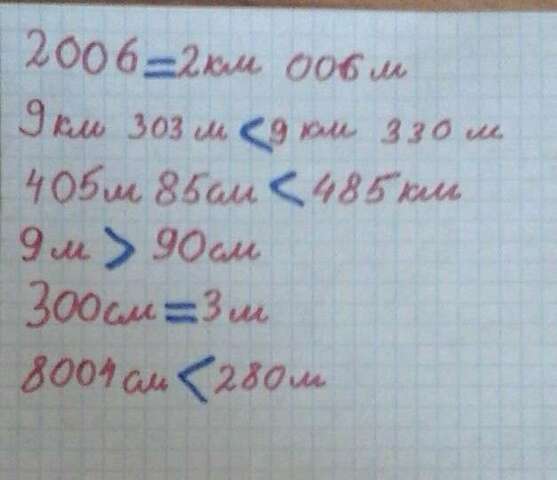 2006=2км 006м
9км 303м<9км 330м
405м 85см<485км
9м>90см
300см=3м
8001см<280м